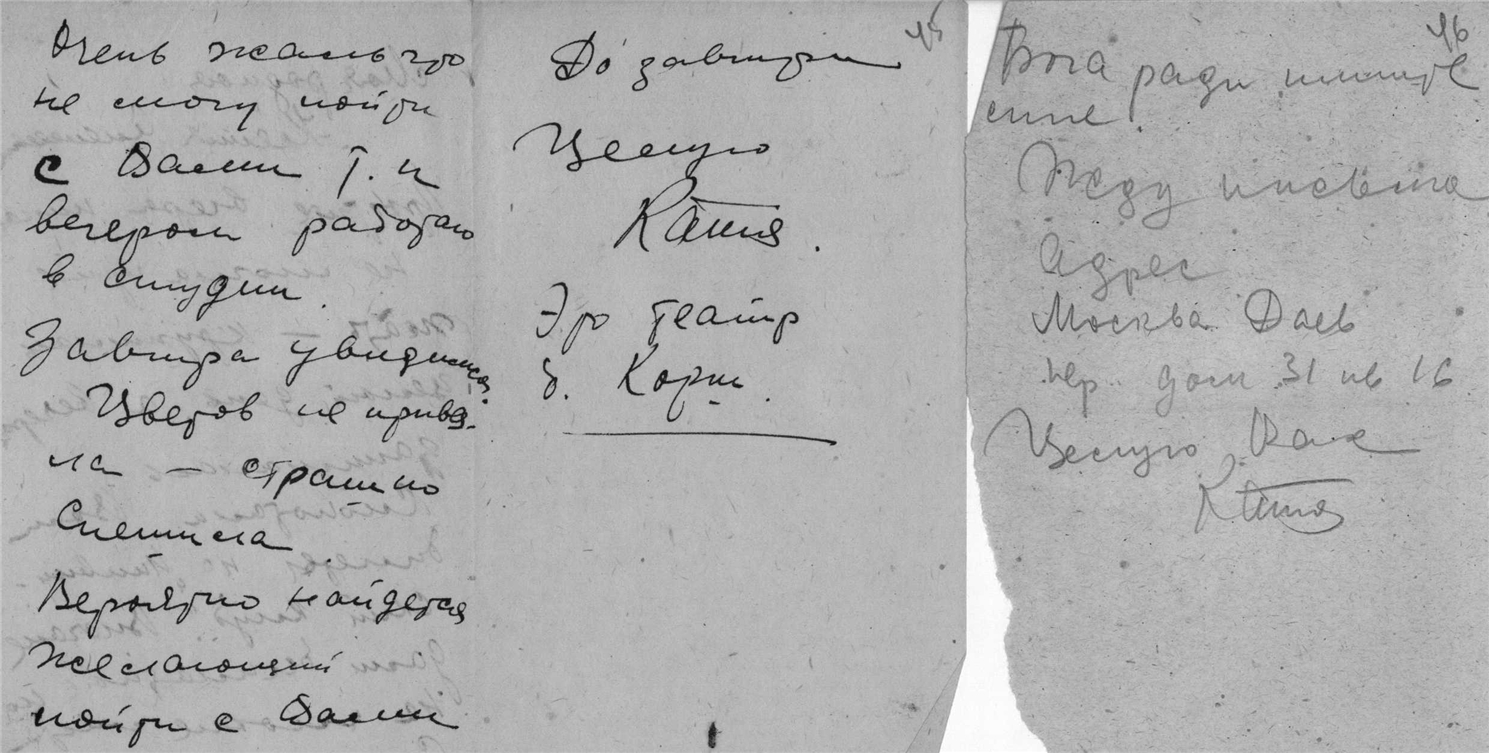 Очень жаль что
не могу пойти
с Вами т. к
вечером работаю
в студии.
Завтра увидимся.
Цветов не привез-
ла – страшно
спешила.
Вероятно найдется
желающий
пойти с Вами
45
До завтра
Целую
Катя.
Это театр
б. Корш.
46
Бога ради пишите
мне.
Жду письма
Адрес
Москва Даев
пер. дом 31 кв 16
Целую Вас
Катя